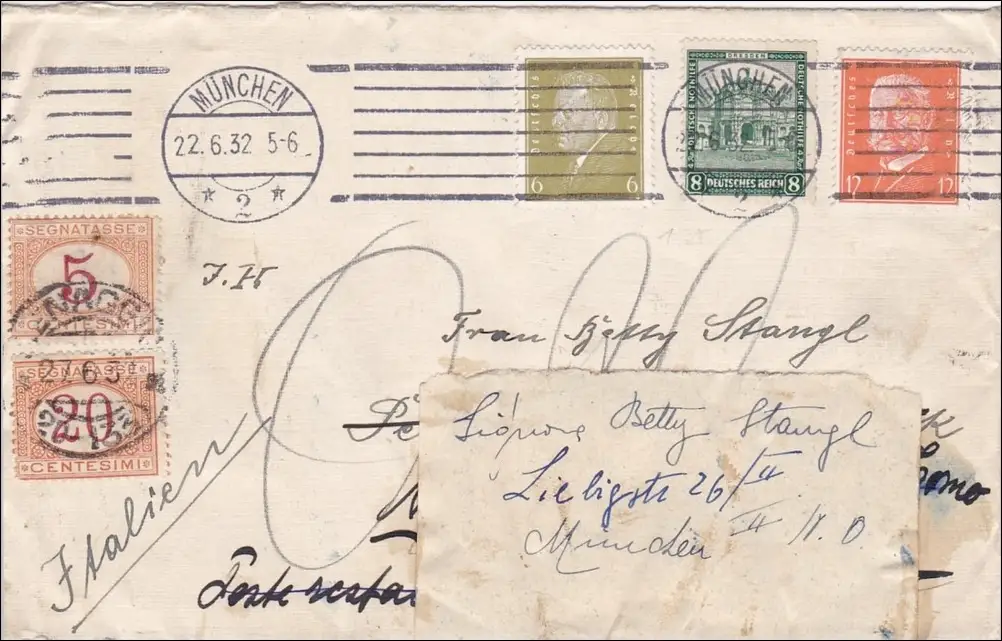 MÜNCHEN
22.6.32 5-6
* 2 *
Deutsches Reich
6 6
DRESDEN
DEUTSCHE NOTHILFE
8 DEUTSCHES REICH 8
MÜNCHEN
2
Deutsches Reich
12 12
SEGNATASSE
5
CENTESIMI
SEGNATASSE
20
CENTESIMI
27.6.3
J. H
Frau Betty Stangl
Signora Betty Stangl
Liebigstr 26/II
München II N. O
Italien
Poste resta